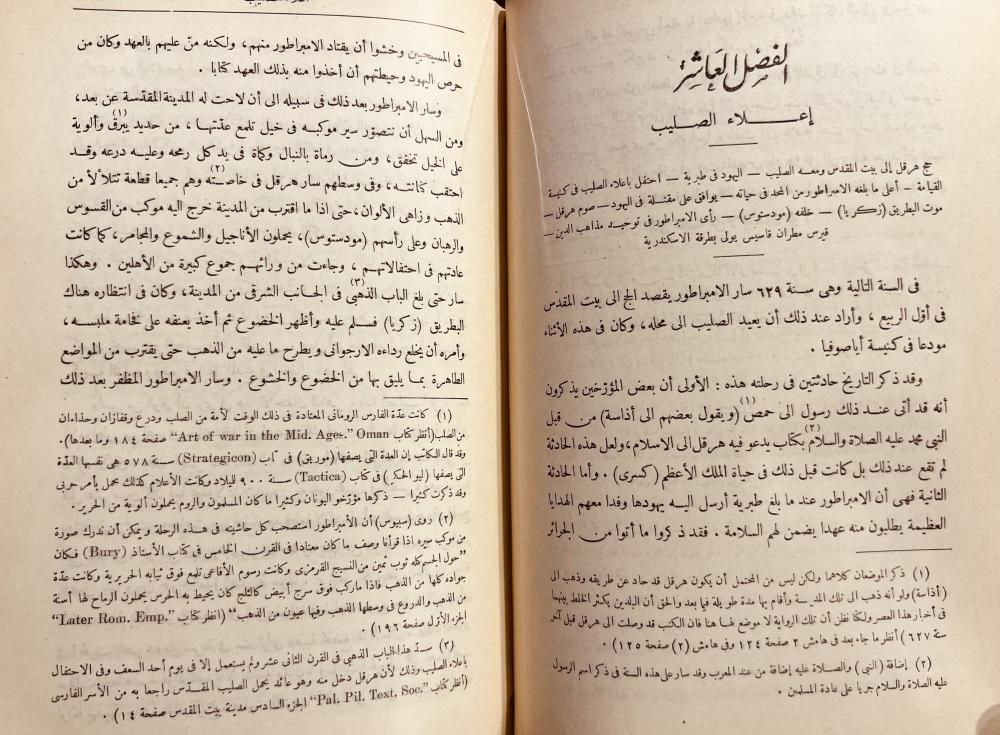 الفصل العاشر
إعلاء الصليب
حج هرقل إلى بيت المقدس ومعه الصليب — اليهود في طبرية — احتفل باعلاء الصليب في كنيسة
القيامة — أعلى ما بلغه الامبراطور من المجد في حياته — يوافق على مقتلة في اليهود — صوم هرقل —
موت البطريق (زكريا) — خلفه (مودستوس) — رأى الامبراطور في توحيد مذاهب الدين —
قيرس مطران فاسيس يولى بطرقة الاسكندرية
فى السنة التالية وهى سنة ٦٢٩ سار الامبراطور يقصد الحج الى بيت المقدس
فى أول الربيع ، وأراد عند ذلك أن يعيد الصليب الى محله، وكان فى هذه الأثناء
مودعا فى كنيسة أياصوفيا .
وقد ذكر التاريخ حادثتين فى رحلته هذه : الأولى أن بعض المؤرّخين يذكرون
أنه قد أتى عنـد ذلك رسول الى حمص (١) (ويقول بعضهم الى أذاسة) من قبل
النبي محمد عليه الصلاة والسلام (٢) بكتاب يدعو فيه هرقل الى الاسلام، ولعل هذه الحادثة
لم تقع عند ذلك بل كانت قبل ذلك فى حياة الملك الأعظم (كسرى) . وأما الحادثة
الثانية فهى أن الامبراطور عند ما بلغ طبرية أرسل اليـه يهودها وفدا معهم الهدايا
العظيمة يطلبون منه عهدا يضمن لهم السلامة . فقد ذكروا ما أتوا من الجرائر
(١) ذكر الموضعان كلاهما ولكن ليس من المحتمل أن يكون هرقل قد حاد عن طريقه وذهب الى
(أذاسة) ولو أنه ذهب الى تلك المدينة وأقام بها مدة طويلة فيما بعد والحق أن البلدين يكثر الخلط بينهما
فى أخبار هذا العصر ولكنا نظن أن تلك الرواية لا موضع لها هنا فان الكتب قد وصلت الى هرقل قبل آخر
سنة ٦٢٧) أنظر ما جاء بعد فى هامش ٢ صفحة ١٢٤ وفى هامش (٢) صفحة ١٢٥) .
(٢) إضافة (النبي) والصـلاة عليه إضافة من عند المعرب وقد سار على هذه السنة فى ذكر اسم الرسول
عليه الصلاة والسلام جريا على عادة المسلمين .
فى المسيحيين وخشوا أن يقتاد الامبراطور منهم، ولكنه منّ عليهم بالعهد وكان من
حرص اليهود وحيطتهم أن أخذوا منه بذلك العهد كتابا .
وسار الامبراطور بعد ذلك فى سبيله الى أن لاحت له المدينة المقدّسة عن بعد،
ومن السهل أن نتصوّر سير موكبـه فى خيل تلمع عدّتها (١) ، من حديد يبرق وألوية
على الخيل تخفق، ومن رماة بالنبال وكماة فى يد كل رمحه وعليـه درعه وقـد
احتقب كنانتـه، وفى وسطهم سار هرقل فى خاصـته (٢) وهم جميعا قطعة تتلألأ من
الذهب وزاهى الألوان، حتى اذا ما اقترب من المدينة خرج اليه موكب من القسوس
والرهبان وعلى رأسهم (مودستوس)، يحملون الأناجيل والشموع والمجامر، كما كانت
عادتهم فى احتفالاتهـم ، وجاءت من ورائهـم جموع كبيرة من الأهلين . وهكذا
سار حتى بلغ الباب الذهبي (٣) فى الجـانب الشرقى من المدينة، وكان فى انتظاره هناك
البطريق (زكريا) فسـلم عليه وأظهر الخضوع ثم أخذ يعنفه على فخامة ملبسـه،
وأمره أن يخلع رداءه الارجوانى ويطرح ما عليه من الذهب حتى يقترب من المواضع
الطاهرة بمـا يليق بها من الخضوع والخشوع . وسار الامبراطور المظفر بعد ذلك
(١) كانت عدّة الفارس الرومانى المعتادة فى ذلك الوقت لأمة من الصلب ودرع وقفازان وحذاءان
من الصلب (أنظر كتاب "Art of war in the Mid. Ages." Oman صفحة ١٨٤ وما بعدها).
وقد قال الكاتب إن العدة التى يصفها (موريق) فى كتاب (Strategicon) سـنة ٥٧٨ هى نفسها العدّة
التى يصفها (ليو الحكيم) فى كتاب (Tactica) سـنة ٩٠٠ للميلاد وكانت الأعلام كذلك تحمل بأمر حربى
وقد ذكرت كثيرا — ذكرها مؤرّخو اليونان وكثيرا ما كان المسلمون والروم يحملون ألوية من الحرير .
(٢) روى (سبيوس) أن الأمبراطور استصحب كل حاشيته فى هـذه الرحلة ويمكن أن ندرك صورة
من موكب سيره اذا قرأنا وصف ما كان معتادا فى القرن الخامس فى كتاب الأستاذ (Bury) فـكان
"حول الجسم كله ثوب ثمين من النسيج القرمزى وكانت رسوم الأفاعى تلمع فوق ثيابه الحريرية وكانت عدّة
جواده كلها من الذهب فاذا ماركب فوق سرج أبيض كالثلج كان يحيط به الحرس يحملون الرماح لها أسنة
من الذهب والدروع فى وسطها الذهب وفيها عيون من الذهب" (انظر كتاب "Later Rom. Emp."
الجزء الأول صفحة ١٩٦) .
(٣) سـدّ هذا الباب الذهبى فى القرن الثانى عشر ولم يستعمل إلا فى يوم أحد السعف وفى الاحتفال
باعلاء الصليب وذلك لأن هرقل دخل منه وهو عائد يحمل الصليب المقـدّس راجعا به من الأسر الفارسى
(أنظر كتاب "Pal. Pil. Text, Soc." الجزء السادس مدينة بيت المقدس صفحة ١٤) .